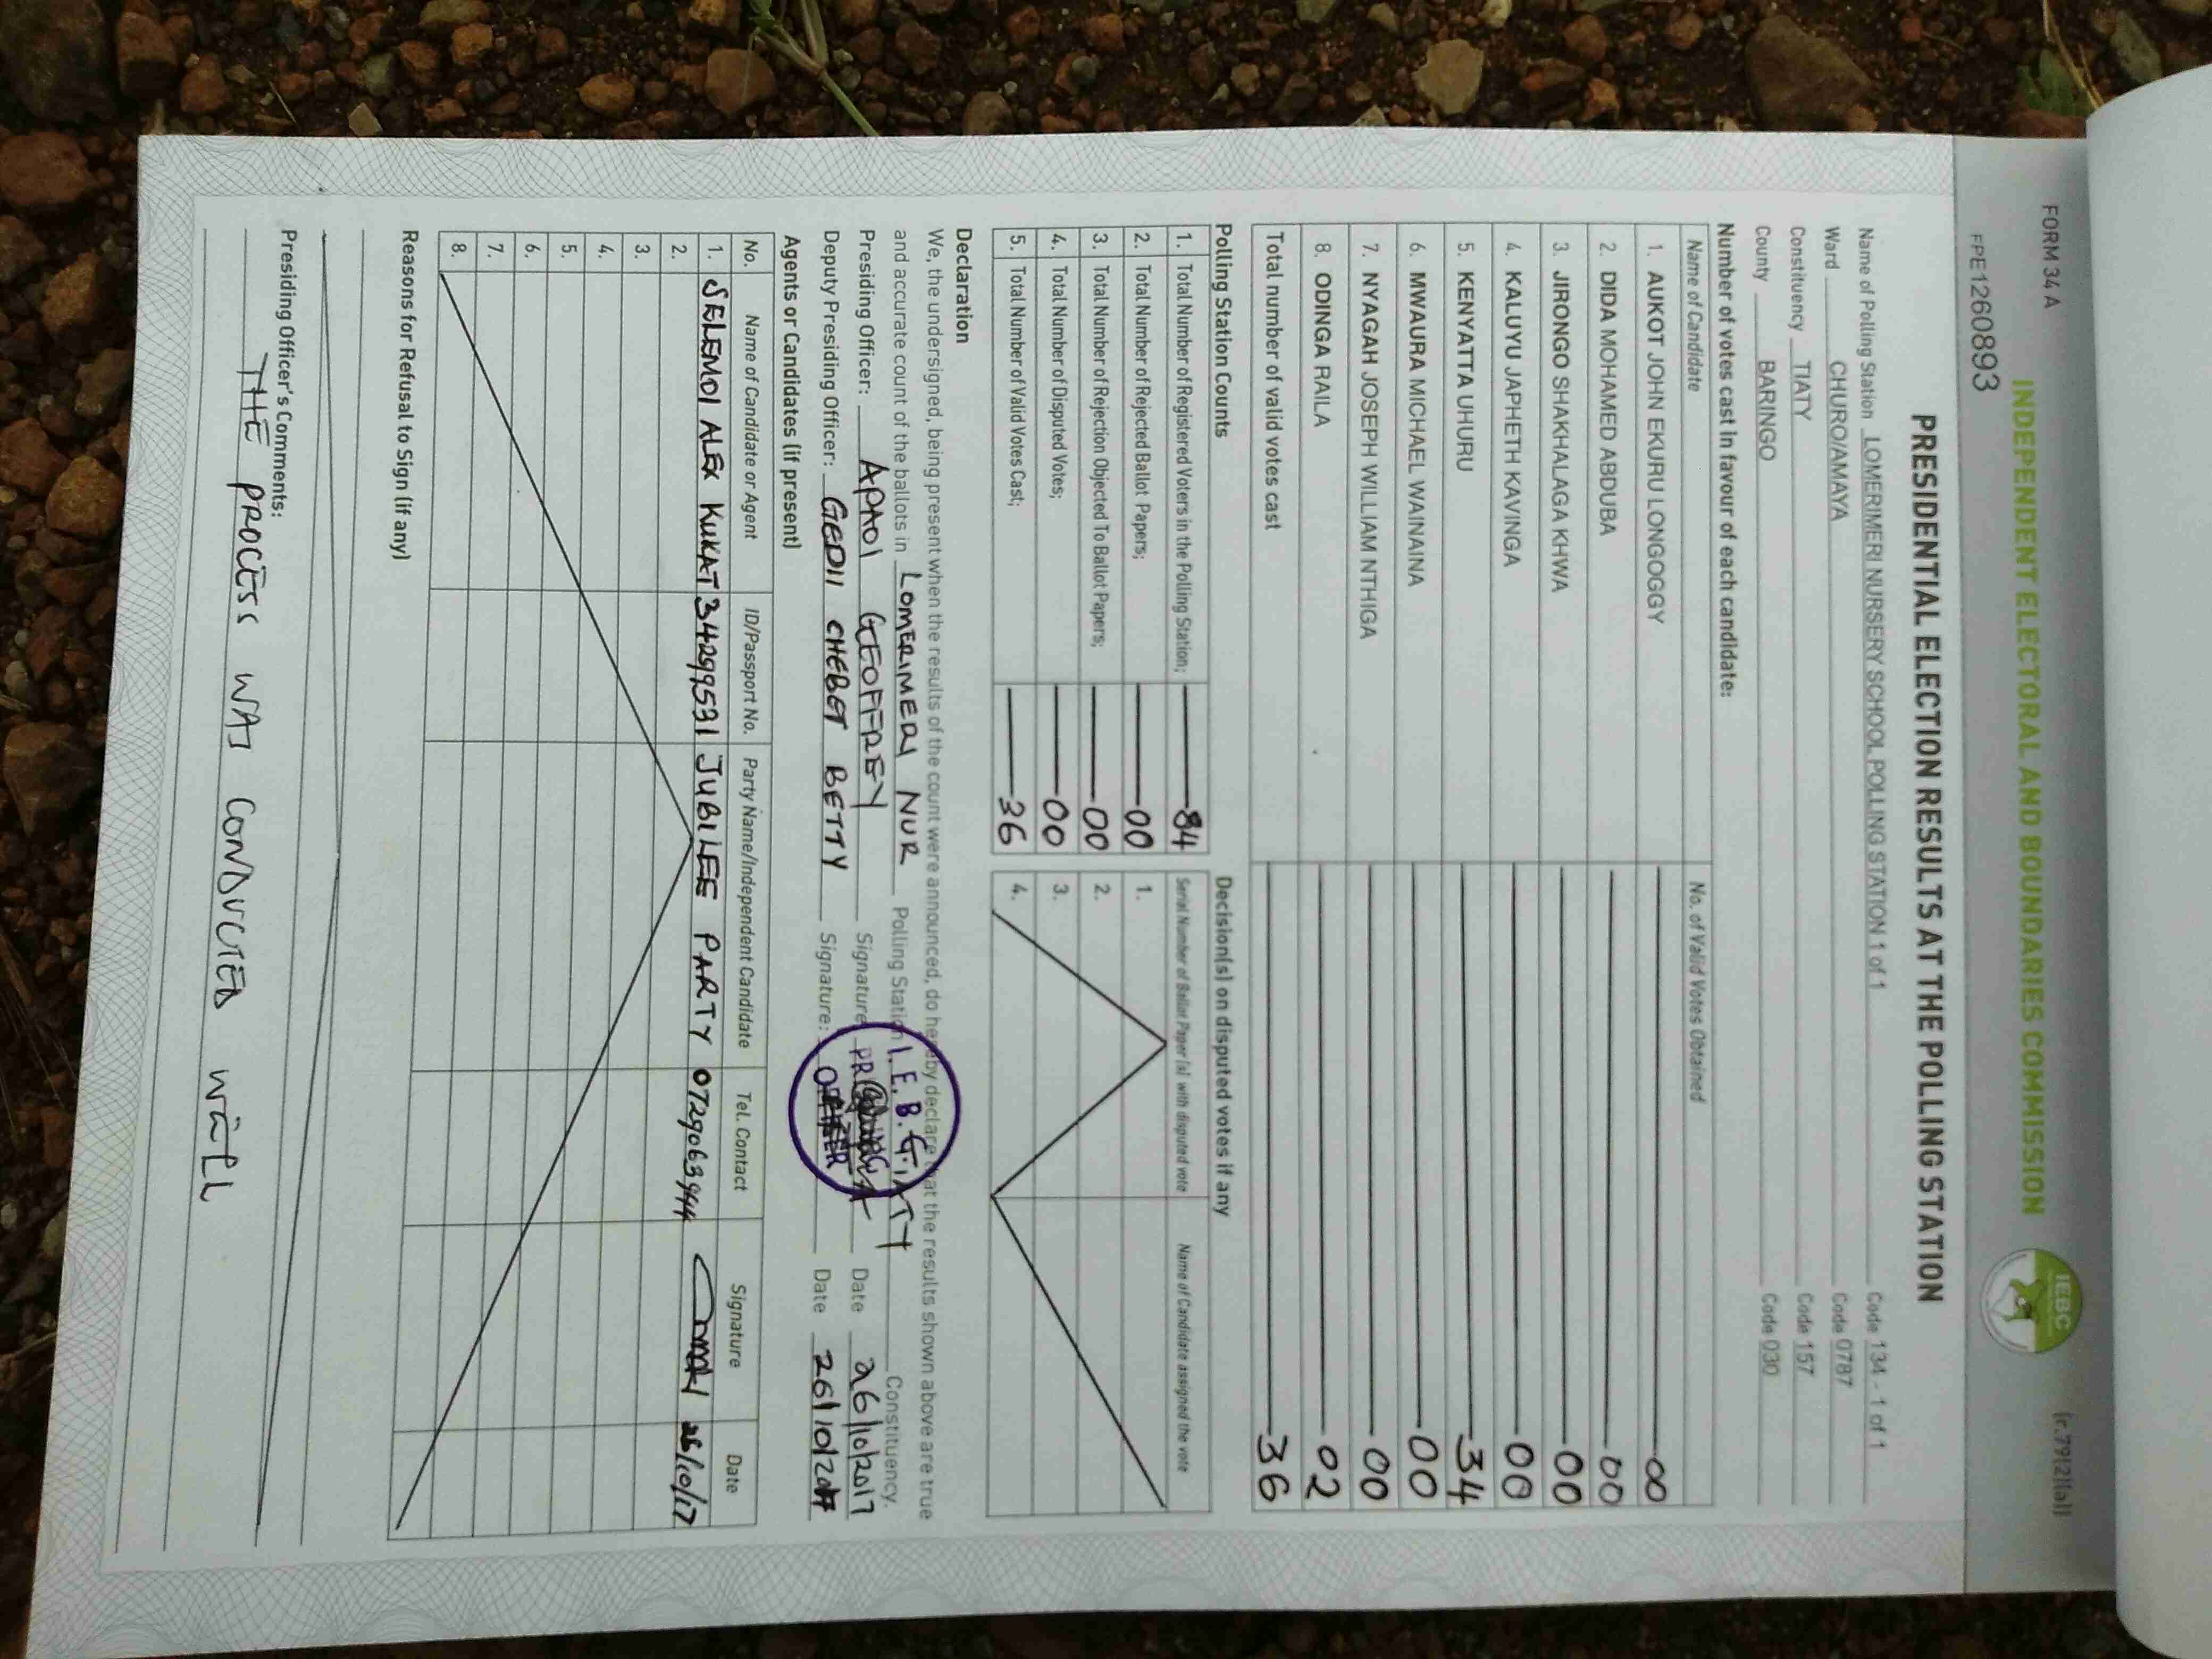 FORM 34 A
(r.79(2)(a))
INDEPENDENT ELECTORAL AND BOUNDARIES COMMISSION
IEBC
FPE1260893
PRESIDENTIAL ELECTION RESULTS AT THE POLLING STATION
Name of Polling Station LOMERIMERI NURSERY SCHOOL POLLING STATION 1 of 1 Code 134 - 1 of 1
Ward CHURO/AMAYA Code 0787
Constituency TIATY Code 157
County BARINGO Code 030
Number of votes cast in favour of each candidate:
Name of Candidate No. of Valid Votes Obtained
1. AUKOT JOHN EKURU LONGOGGY 00
2. DIDA MOHAMED ABDUBA 00
3. JIRONGO SHAKHALAGA KHWA 00
4. KALUYU JAPHETH KAVINGA 00
5. KENYATTA UHURU 34
6. MWAURA MICHAEL WAINAINA 00
7. NYAGAH JOSEPH WILLIAM NTHIGA 00
8. ODINGA RAILA 02
Total number of valid votes cast 36
Polling Station Counts
1. Total Number of Registered Voters in the Polling Station; 84
2. Total Number of Rejected Ballot Papers; 00
3. Total Number of Rejection Objected To Ballot Papers; 00
4. Total Number of Disputed Votes; 00
5. Total Number of Valid Votes Cast; 36
Decision(s) on disputed votes if any
Serial Number of Ballot Paper (s) with disputed vote Name of Candidate assigned the vote
1.
2.
3.
4.
Declaration
We, the undersigned, being present when the results of the count were announced, do hereby declare that the results shown above are true
and accurate count of the ballots in LOMERIMERI NUR Polling Station TIATY Constituency.
Presiding Officer: APAOI GEOFFREY Signature Date 26/10/2017
Deputy Presiding Officer: GEDII CHEBET BETTY Signature: Date 26/10/2017
I.E.B.C
PRESIDING
OFFICER
Agents or Candidates (if present)
No. Name of Candidate or Agent ID/Passport No. Party Name/Independent Candidate Tel. Contact Signature Date
1. SELEMOI ALEX KUKAT 34299531 JUBILEE PARTY 0729063944 26/10/17
2.
3.
4.
5.
6.
7.
8.
Reasons for Refusal to Sign (if any)
Presiding Officer's Comments:
THE PROCESS WAS CONDUCTED WELL